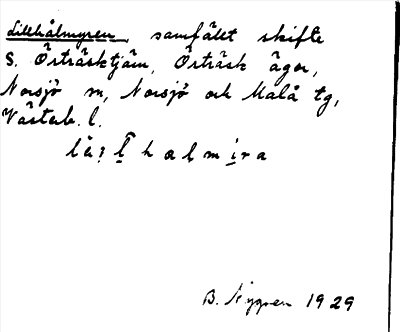 Lillhålmyren samfällt skifte
S. Örträsktjärn, Örträsk ägor,
Norsjö sn, Norsjö och Malå tg,
Västerb. l.
B. Nygren 1929